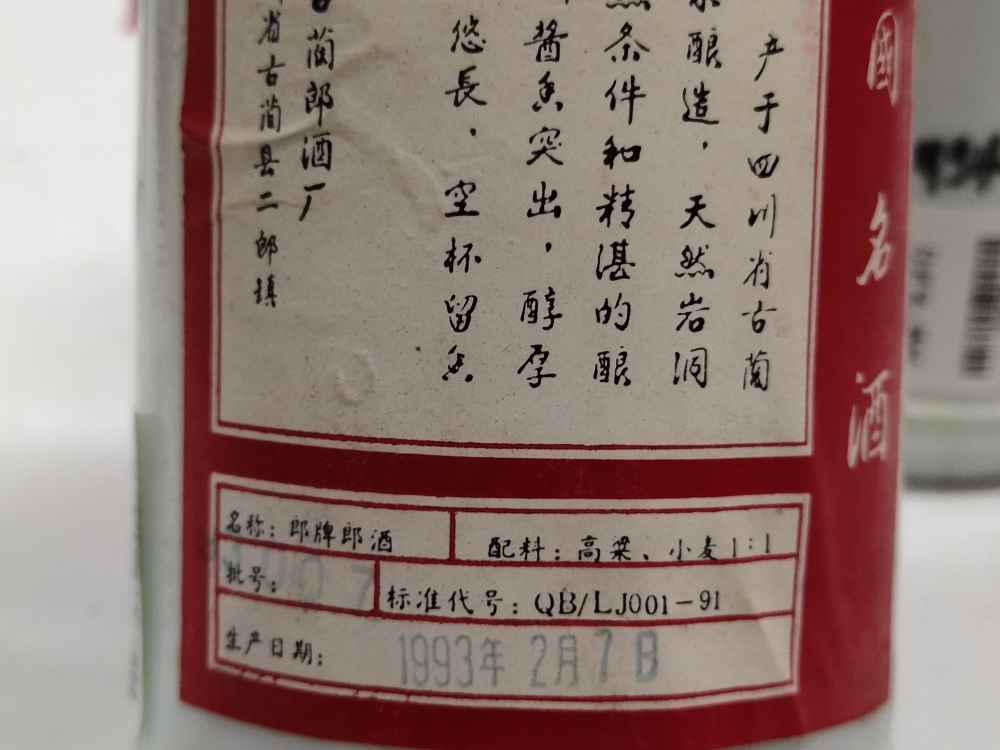 产于四川省古蔺
酿造，天然岩洞
条件和精湛的酿
酱香突出，醇厚
悠長，空杯留香
蔺郎酒厂
省古蔺县二郎镇
國名酒
名称：郎牌郎酒
配料：高粱、小麦1:1
批号：
标准代号：QB/LJ001-91
生产日期：1993年2月7日